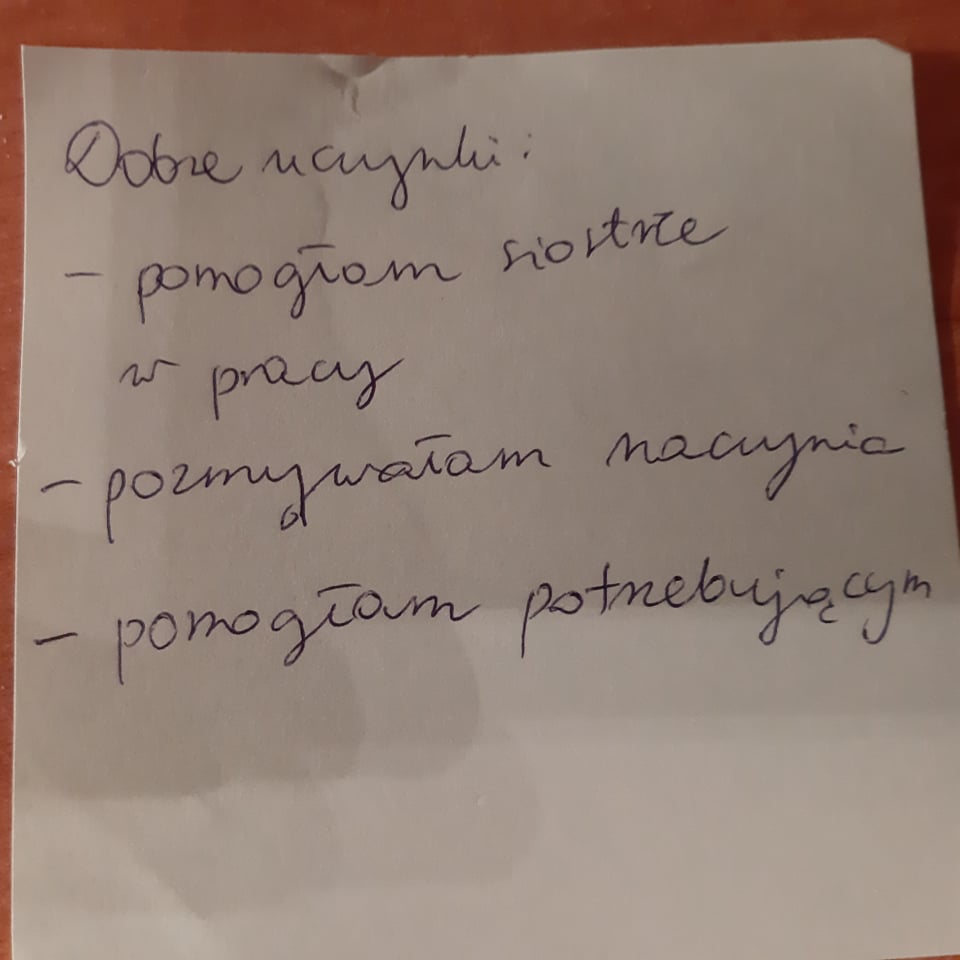 Dobre uczynki:
- pomogłam siostrze
w pracy
- pozmywałam naczynia
- pomogłam potrzebującym